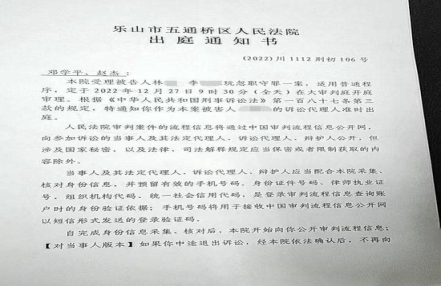 乐山市五通桥区人民法院
出庭通知书
(2022)川1112刑初106号
邓学平、赵杰:
本院受理被告人林 李 玩忽职守罪一案,适用普通程
序,定于2022年12月27日9时30分(全天)在大审判庭开庭
审理。根据《中华人民共和国刑事诉讼法》第一百八十七条第三
款的规定,特通知你作为本案被害人 的诉讼代理人准时出
庭。
人民法院审判案件的流程信息将通过中国审判流程信息公开网,
向参加诉讼的当事人及其法定代理人、诉讼代理人、辩护人公开,但
涉及国家秘密,以及法律、司法解释规定应当保密或者限制获取的内
容除外。
当事人及其法定代理人、诉讼代理人、辩护人应当配合本院采集、
核对身份信息,并预留有效的手机号码。身份证件号码、律师执业证
号、组织机构代码、统一社会信用代码,是登录审判流程信息查询账
户时的身份验证依据;手机号码将用于接收中国审判流程信息公开网
以短信形式发送的登录验证码。
自完成身份信息采集、核对后,本院开始向你公开审判流程信息;
【对当事人版本】如果你中途退出诉讼,经本院依法确认后,不再向